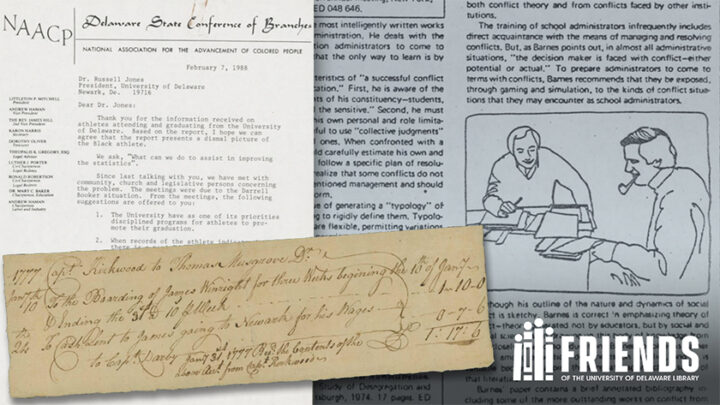 NAACP
Delaware State Conference of Branches
NATIONAL ASSOCIATION FOR THE ADVANCEMENT OF COLORED PEOPLE
February 7, 1988
LITTLETON P. MITCHELL
President
ANDREW HAMAN
Vice President
THE REV. JAMES HILL
2nd Vice President
KAREN HARRIS
Secretary
DOROTHY OLIVER
Treasurer
THEOPALIS K. GREGORY, ESQ.
Legal Advisor
LUTHER J. PORTER
Co-Chairperson
Legal Redress
RONALD ROBERTSON
Co-Chairperson
Legal Redress
DR. MARY E. BAKER
Chairperson, Education
ANDREW HAMAN
Chairperson
Labor and Industry
Dr. Russell Jones
President, University of Delaware
Newark, De. 19716
Dear Dr. Jones:
Thank you for the information received on
athletes attending and graduating from the University
of Delaware. Based on the report, I hope we can
agree that the report presents a dismal picture of
the Black athlete.
We ask, "What can we do to assist in improving
the statistics".
Since last talking with you, we have met with
community, church and legislative persons concerning
the problem. The meetings were due to the Darrell
Booker situation. From the meetings, the following
suggestions are offered to you:
1. The University have as one of its priorities
disciplined programs for athletes to pro-
mote their graduation.
2. When records of the athlete indicate
there is a
ED 048 646.
most intelligently written works
ministration. He deals with the
tion administrators to come to
that the only way to learn is by
teristics of "a successful conflict
cation." First, he is aware of the
nts of his constituency—students,
the sensitive." Second, he must
his own personal and role limita-
ful to use "collective judgments"
ones. When confronted with a
ld carefully estimate his own and
follow a specific plan of resolu-
realize that some conflicts do not
entioned management and should
orm.
e of generating a "typology" of
g to rigidly define them. Typolo-
are flexible, permitting variations
both conflict theory and from conflicts faced by other insti-
tutions.
The training of school administrators infrequently includes
direct acquaintance with the means of managing and resolving
conflicts. But, as Barnes points out, in almost all administrative
situations, "the decision maker is faced with conflict—either
potential or actual." To prepare administrators to come to
terms with conflicts, Barnes recommends that they be exposed,
through gaming and simulation, to the kinds of conflict situa-
tions that they may encounter as school administrators.
1777 Capt. Kirkwood to Thomas Musgrove Dr.
Jany 7th to the Boarding of James Winright for three Weeks begining the 10th of Jany
& Ending the 31st @ 10 p Week 1-10-0
24 To Cash lent to James going to Newark for his Wages 0-7-6
£ 1:17:6
to Capt. Darby Jany 31st 1777 Recd the Contents of the
above Acct from Capt. Kirkwood
though his outline of the nature and dynamics of social
ct is sketchy, Barnes is correct in emphasizing theory of
by educators, but by social and
Study of Desegregation and
sburgh, 1974. 17 pages. ED
Barnes' paper contains a brief annotated bibliography in-
cluding some of the more outstanding works on conflict from
FRIENDS
OF THE UNIVERSITY OF DELAWARE LIBRARY